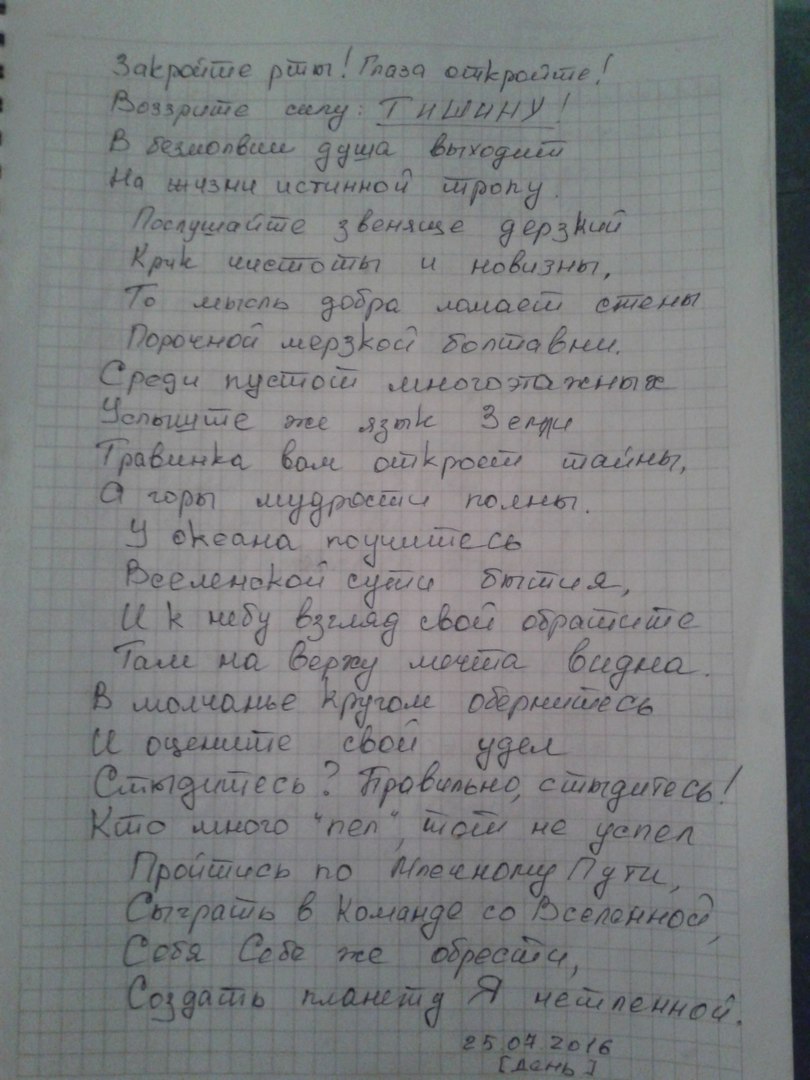 Закройте рты! Глаза откройте!
Воззрите силу: ТИШИНУ!
В безмолвии душа выходит
На жизни истинной тропу.
Послушайте звеняще дерзкий
Крик чистоты и новизны,
То мысль добра ломает стены
Порочной мерзкой болтавни.
Среди пустот многоэтажных
Услышьте же язык Земли
Травинка вам откроет тайны,
А горы мудрости полны.
У океана поучитесь
Вселенской сути бытия,
И к небу взгляд свой обратите
Там на верху мечта видна.
В молчанье кругом обернитесь
И оцените свой удел
Стыдитесь? Правильно, стыдитесь!
Кто много "пел", тот не успел
Пройтись по Млечному Пути,
Сыграть в Команде со Вселенной,
Себя Себе же обрести,
Создать планету Я нетленной.
25.07.2016
[день]